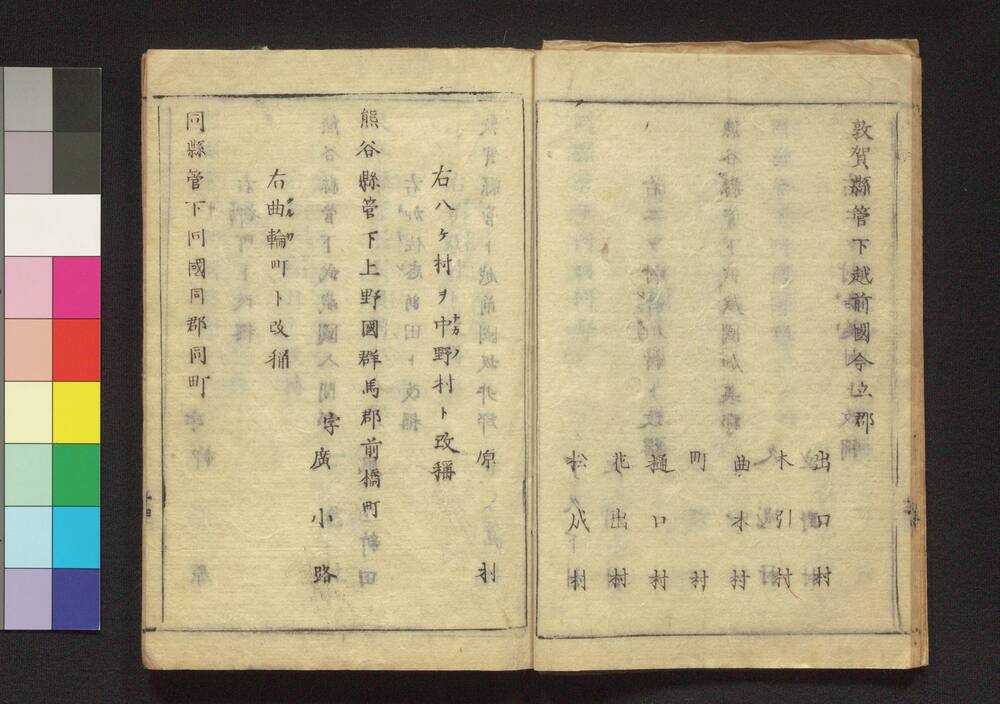 敦賀縣管下越前國今立郡
出口村
木引村
曲木村
町村
樋口村
北出村
松成村
原村
右八ヶ村ヲ中野村ト改稱
ナカノ
熊谷縣管下上野國群馬郡前橋町
字廣小路
右曲輪町ト改稱
クルワ
同縣管下同國同郡同町